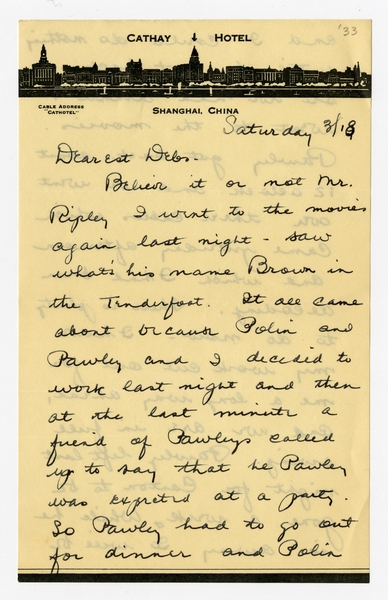 '33
CATHAY HOTEL
CABLE ADDRESS
"CATHOTEL"
SHANGHAI, CHINA
Saturday 3/18
Dearest Debs-
Believe it or not Mr.
Ripley I went to the movies
again last night - saw
what's his name Brown in
the Tenderfoot. It all came
about because Polin and
Pawley and I decided to
work last night and then
at the last minute a
friend of Pawleys called
up to say that he Pawley
was expected at a party.
So Pawley had to go out
for dinner and Polin